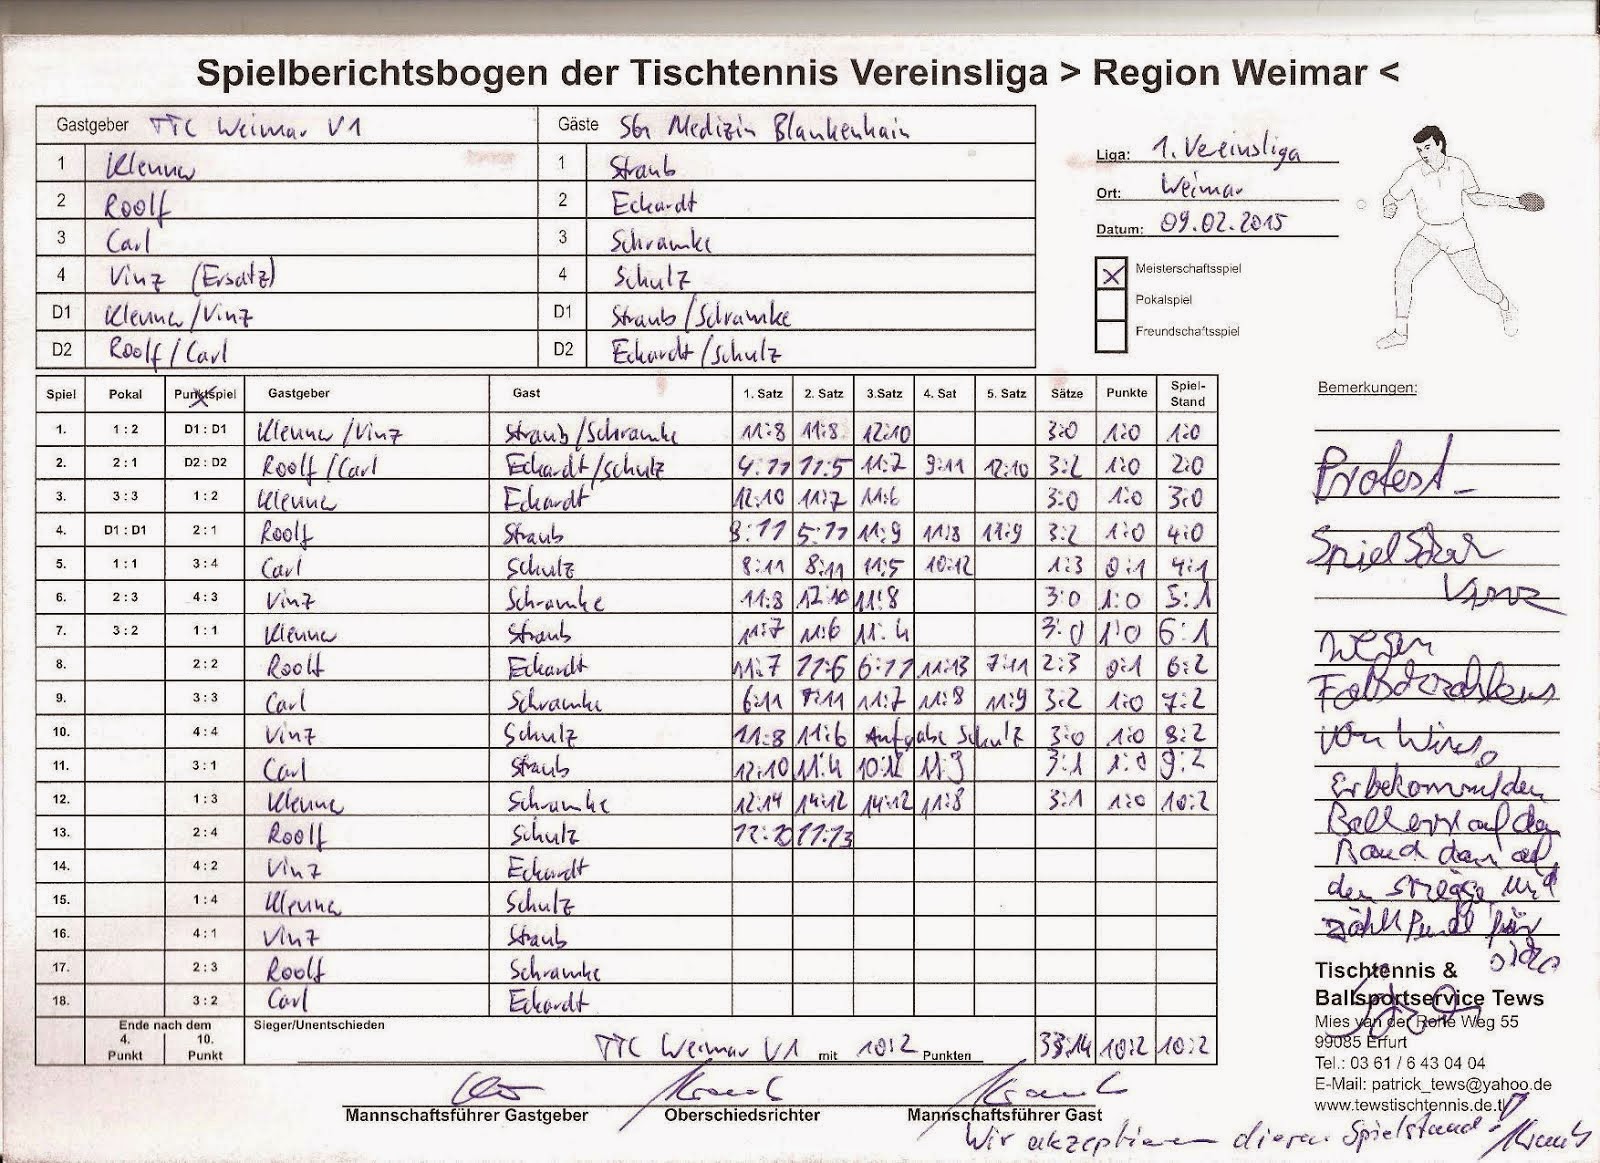 Spielberichtsbogen der Tischtennis Vereinsliga > Region Weimar <
Gastgeber TTC Weimar V1 Gäste SG Medizin Blankenhain
1 Klenner 1 Straub
2 Roolf 2 Eckardt
3 Carl 3 Schramke
4 Vinz (Ersatz) 4 Schulz
D1 Klenner/Vinz D1 Straub/Schramke
D2 Roolf/Carl D2 Eckardt/Schulz
Liga: 1. Vereinsliga
Ort: Weimar
Datum: 09.02.2015
X Meisterschaftsspiel
Pokalspiel
Freundschaftsspiel
Spiel Pokal Punktspiel Gastgeber Gast 1. Satz 2. Satz 3.Satz 4. Sat 5. Satz Sätze Punkte Spiel-Stand
1. 1 : 2 D1 : D1 Klenner/Vinz Straub/Schramke 11:8 11:8 12:10 3:0 1:0 1:0
2. 2 : 1 D2 : D2 Roolf/Carl Eckardt/Schulz 4:11 11:5 11:7 9:11 12:10 3:2 1:0 2:0
3. 3 : 3 1 : 2 Klenner Eckardt 12:10 11:7 11:6 3:0 1:0 3:0
4. D1 : D1 2 : 1 Roolf Straub 8:11 5:11 11:9 11:8 11:9 3:2 1:0 4:0
5. 1 : 1 3 : 4 Carl Schulz 8:11 8:11 11:5 10:12 1:3 0:1 4:1
6. 2 : 3 4 : 3 Vinz Schramke 11:8 12:10 11:8 3:0 1:0 5:1
7. 3 : 2 1 : 1 Klenner Straub 11:7 11:6 11:4 3:0 1:0 6:1
8. 2 : 2 Roolf Eckardt 11:7 11:6 6:11 11:13 7:11 2:3 0:1 6:2
9. 3 : 3 Carl Schramke 6:11 7:11 11:7 11:8 11:9 3:2 1:0 7:2
10. 4 : 4 Vinz Schulz 11:8 11:6 Aufgabe Schulz 3:0 1:0 8:2
11. 3 : 1 Carl Straub 12:10 11:4 10:12 11:9 3:1 1:0 9:2
12. 1 : 3 Klenner Schramke 12:14 14:12 14:12 11:8 3:1 1:0 10:2
13. 2 : 4 Roolf Schulz 12:10 11:13
14. 4 : 2 Vinz Eckardt
15. 1 : 4 Klenner Schulz
16. 4 : 1 Vinz Straub
17. 2 : 3 Roolf Schramke
18. 3 : 2 Carl Eckardt
Ende nach dem Sieger/Unentschieden
4. 10.
Punkt Punkt TTC Weimar V1 mit 10:2 Punkten 33:14 10:2 10:2
Mannschaftsführer Gastgeber Oberschiedsrichter Mannschaftsführer Gast
Wir akzeptieren diesen Spielstand!
Bemerkungen:
Protest
wegen
von
Er bekommt den
Ball erst auf den
Hand dann auf
den Schläger und
zählt Punkt für
sich
Tischtennis &
Ballsportservice Tews
Mies van der Rohe Weg 55
99085 Erfurt
Tel.: 03 61 / 6 43 04 04
E-Mail: patrick_tews@yahoo.de
www.tewstischtennis.de.tl